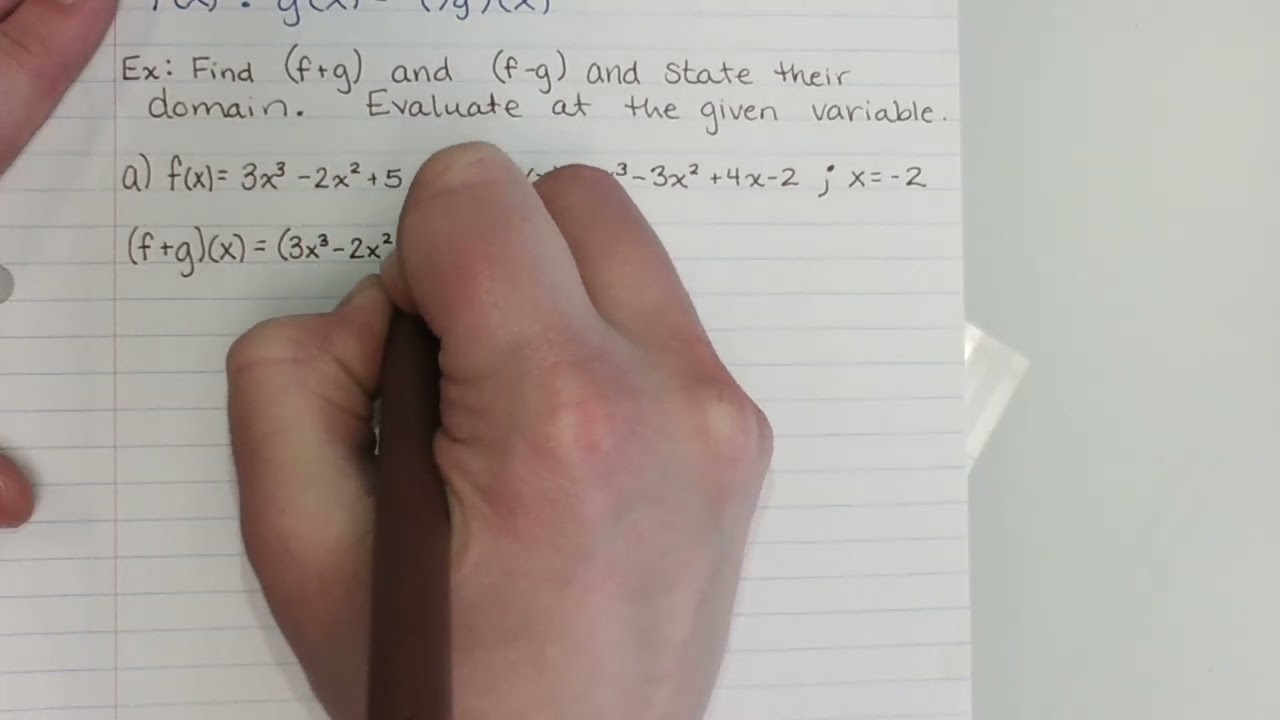 g(x)
(x)
Ex: Find (f+g) and (f-g) and state their
domain. Evaluate at the given variable.
a) f(x)= 3x³ -2x² +5 ³-3x² +4x-2 ; x=-2
(f+g)(x) = (3x³-2x²